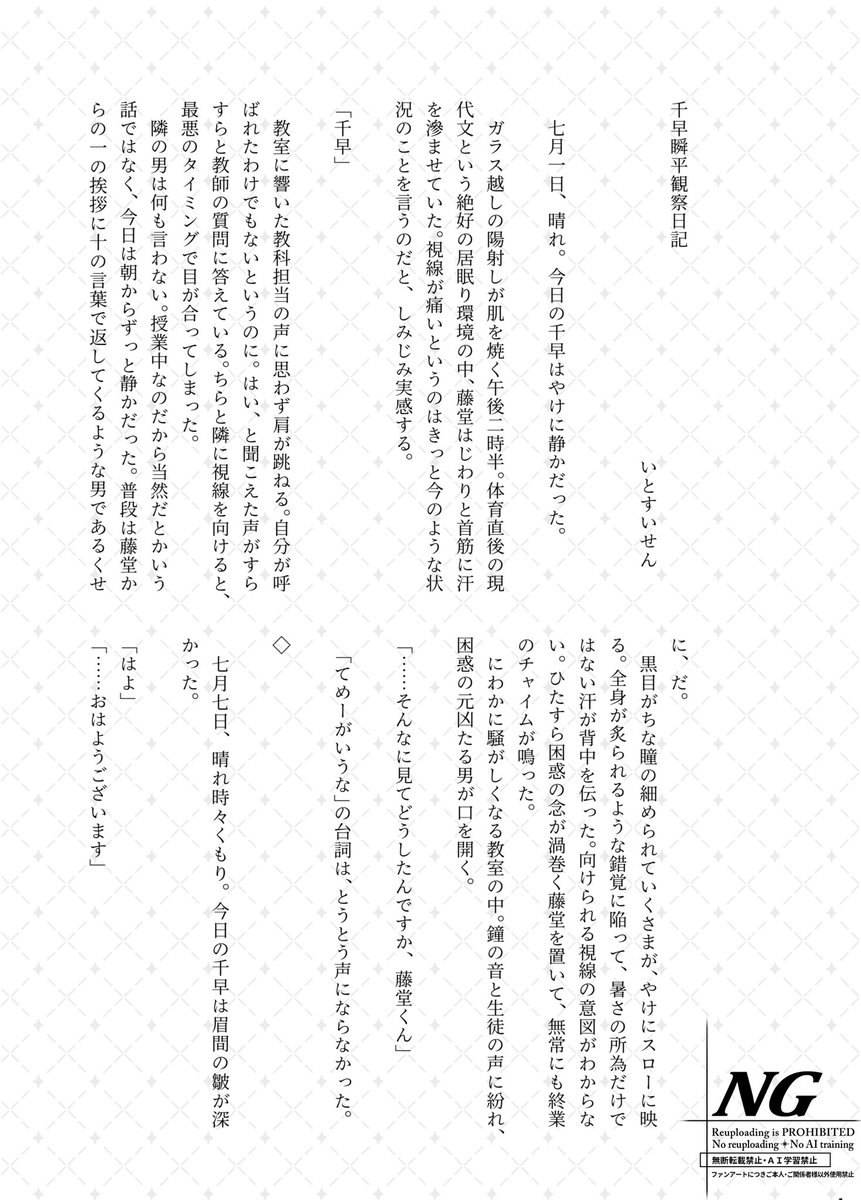 千早瞬平観察日記
いとすいせん
七月一日、晴れ。今日の千早はやけに静かだった。
ガラス越しの陽射しが肌を焼く午後二時半。体育直後の現
代文という絶好の居眠り環境の中、藤堂はじわりと首筋に汗
を滲ませていた。視線が痛いというのはきっと今のような状
況のことを言うのだと、しみじみ実感する。
「千早」
教室に響いた教科担当の声に思わず肩が跳ねる。自分が呼
ばれたわけでもないというのに。はい、と聞こえた声がすら
すらと教師の質問に答えている。ちらと隣に視線を向けると、
最悪のタイミングで目が合ってしまった。
隣の男は何も言わない。授業中なのだから当然だとかいう
話ではなく、今日は朝からずっと静かだった。普段は藤堂か
らの一の挨拶に十の言葉で返してくるような男であるくせ
に、だ。
黒目がちな瞳の細められていくさまが、やけにスローに映
る。全身が炙られるような錯覚に陥って、暑さの所為だけで
はない汗が背中を伝った。向けられる視線の意図がわからな
い。ひたすら困惑の念が渦巻く藤堂を置いて、無常にも終業
のチャイムが鳴った。
にわかに騒がしくなる教室の中。鐘の音と生徒の声に紛れ、
困惑の元凶たる男が口を開く。
「……そんなに見てどうしたんですか、藤堂くん」
「てめーがいうな」の台詞は、とうとう声にならなかった。
◇
七月七日、晴れ時々くもり。今日の千早は眉間の皺が深
かった。
「はよ」
「……おはようございます」
NG
Reuploading is PROHIBITED
No reuploading✦No AI training
無断転載禁止・AI学習禁止
ファンアートにつきご本人・ご関係者様以外使用禁止